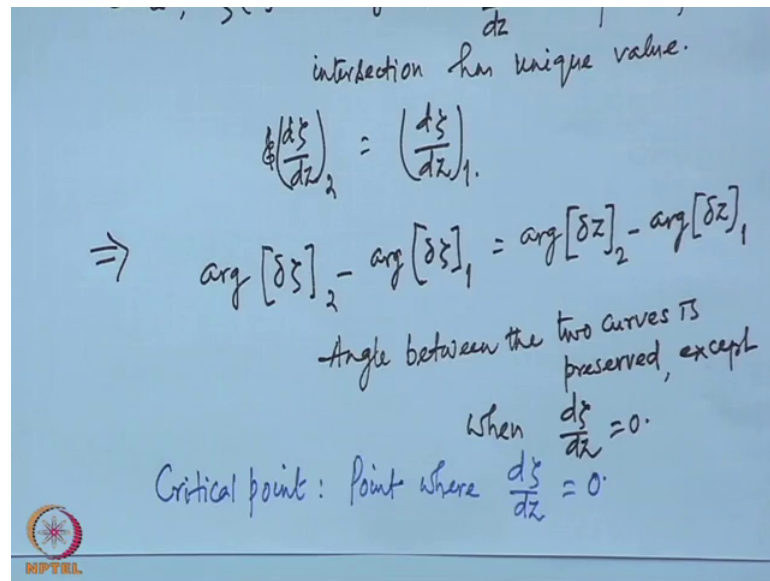 dz
intersection has unique value.
(dζ/dz)₂ = (dζ/dz)₁.
⇒ arg [δζ]₂ - arg [δζ]₁ = arg [δz]₂ - arg [δz]₁
Angle between the two curves is
preserved, except
when dζ/dz = 0.
Critical point : Point where dζ/dz = 0.
NPTEL